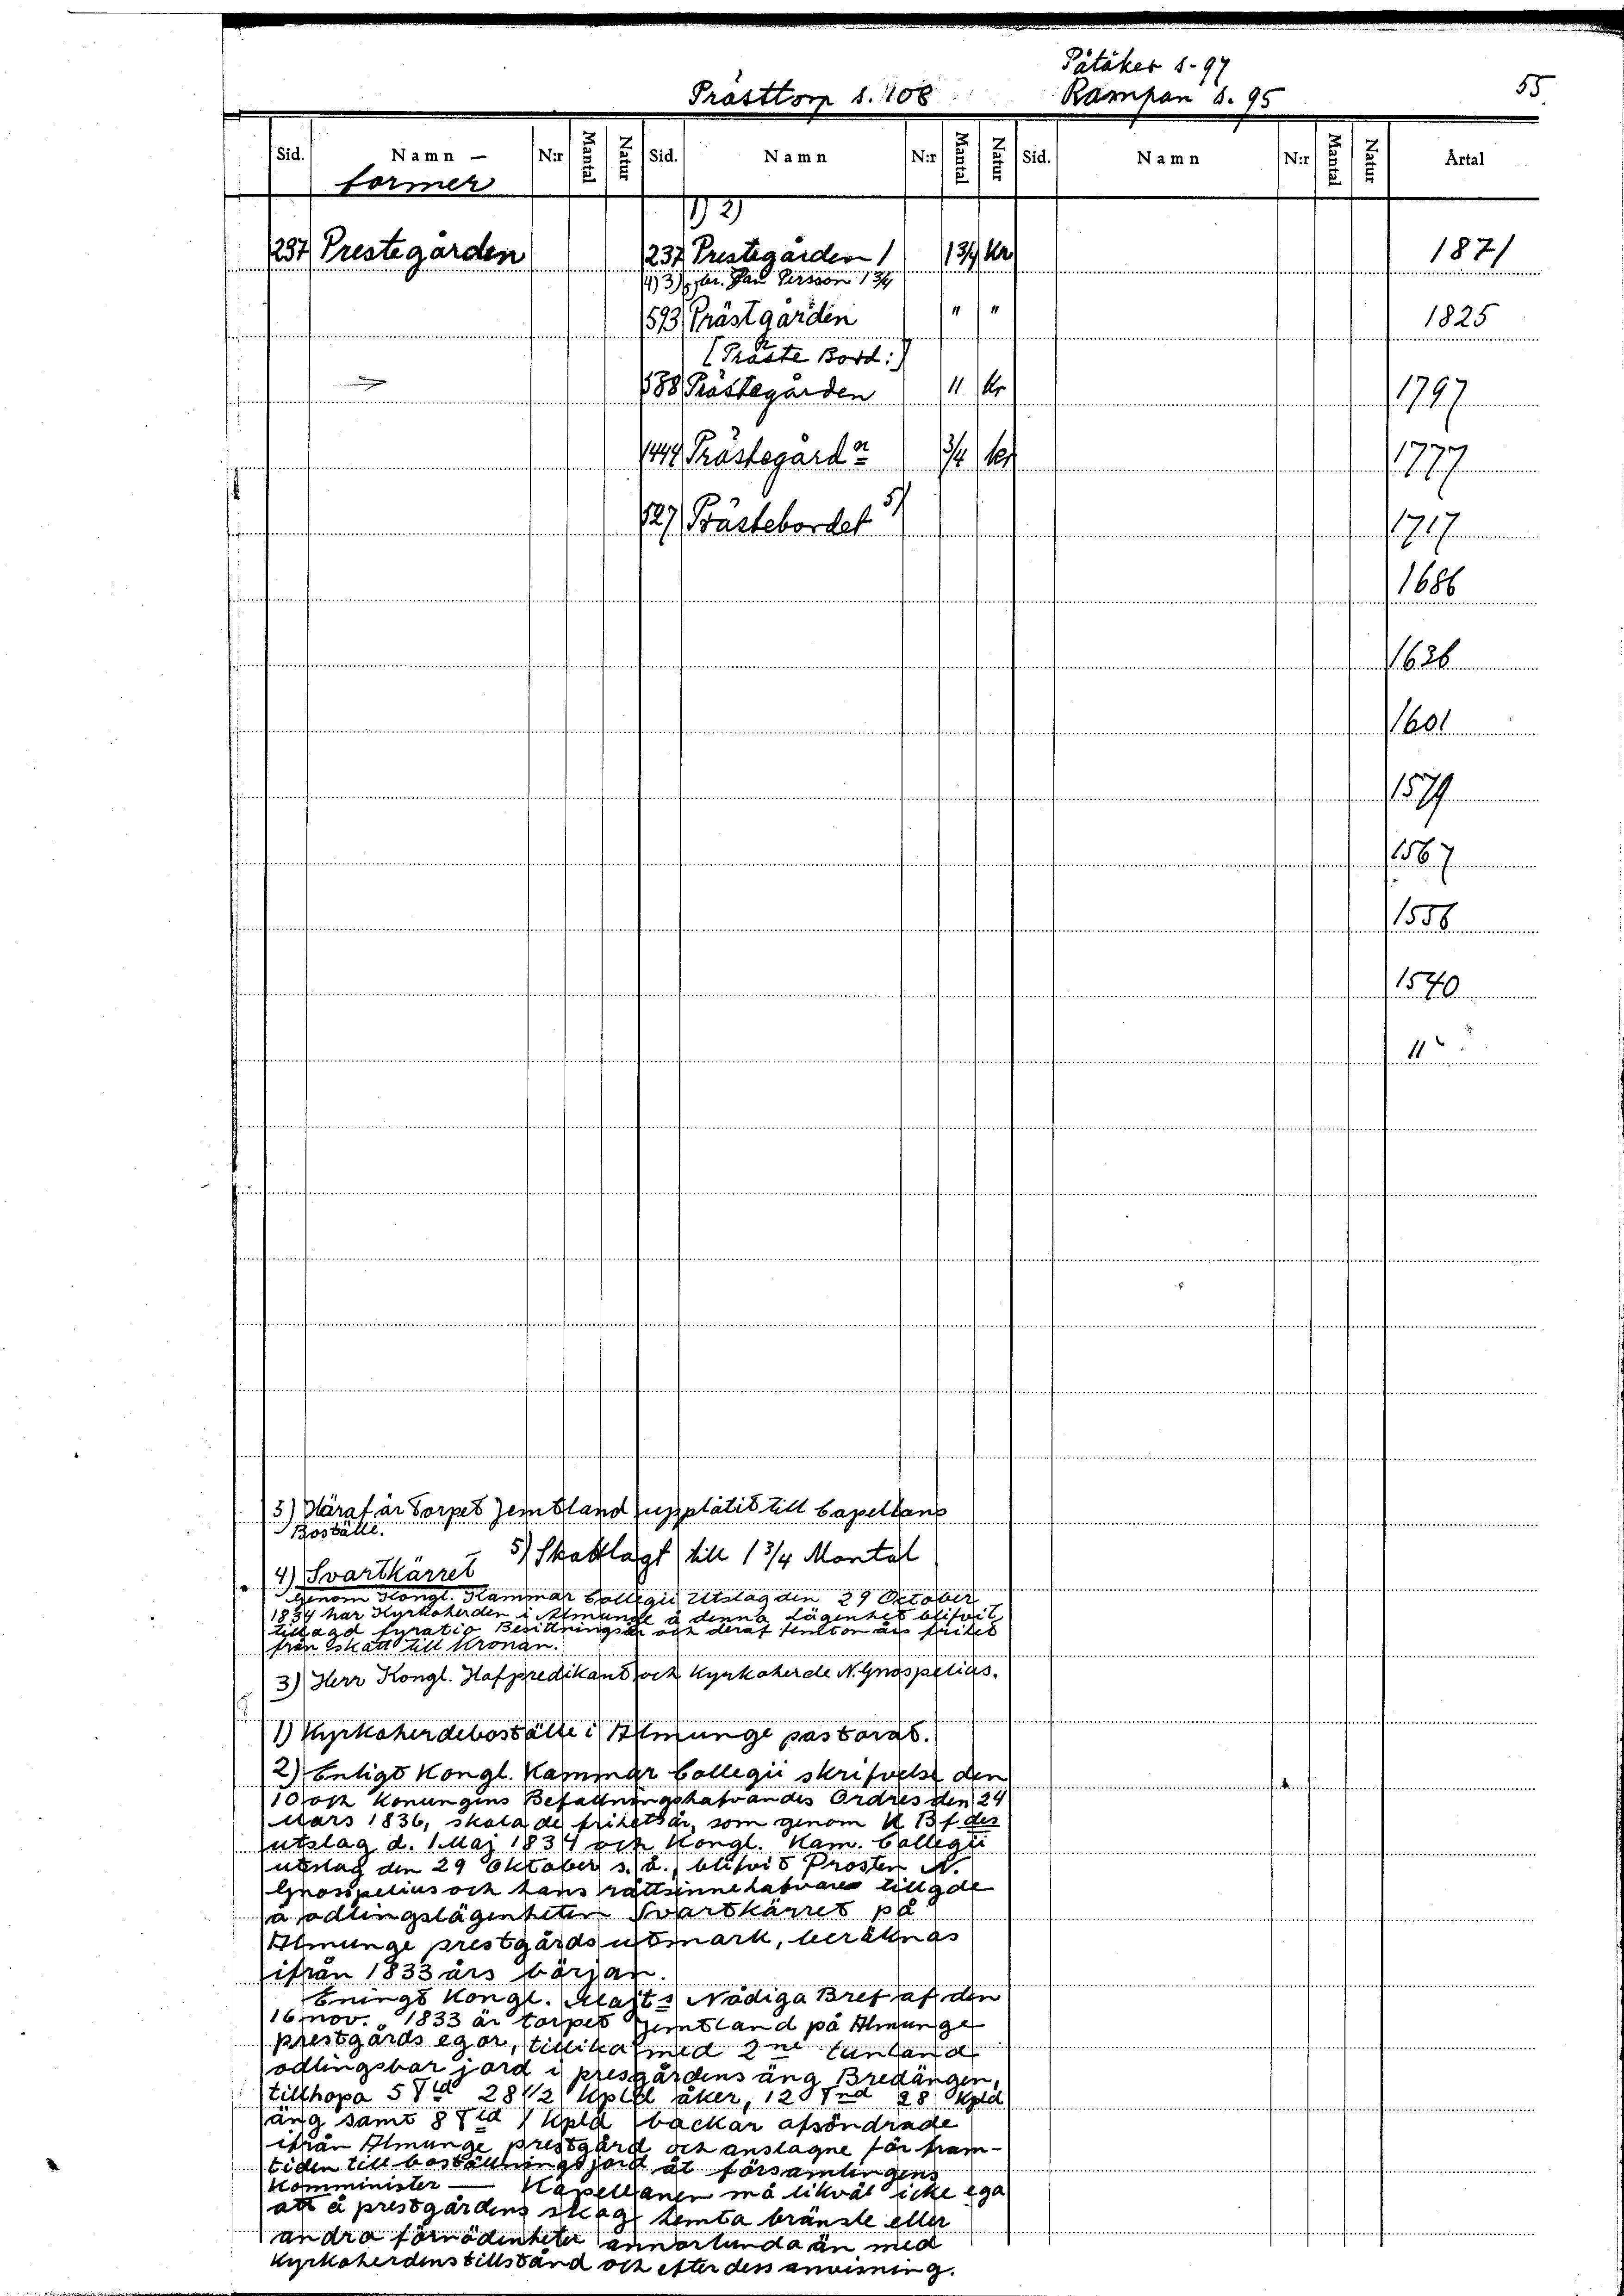 Påtåker s. 97
Prästtorp s. 108 Rampan s. 95 55.
Sid. Namn - N:r Mantal Natur Sid. Namn N:r Mantal Natur Sid. Namn N:r Mantal Natur Årtal
former
1) 2)
237 Prestegården 237 Prestegården 1 1 3/4 Kr 1871
4) 3) Jan Persson 1 3/4
593 Prästgården " " 1825
[Präste Bord:]
588 Prästegården 11 Kr 1797
1444 Prästegårdn 3/4 kr 1777
527 Prästebordet 5) 1717
1686
1636
1601
1579
1567
1556
1540
"
3) Häraf är Torpet Jemtland upplåtit till Capellans
Boställe.
5) Skattlagt till 1 3/4 Mantal
4) Svartkärret
Genom Kongl. Kammar Collegii Utslag den 29 Oktober
1834 har Kyrkoherden i Almunge å denna lägenhet blifvit
tillagd fyratio Besittningsår och deraf femton års frihet
från skatt till Kronan.
3) Herr Kongl. Hofpredikant och Kyrkoherde N. Gnospelius.
1) Kyrkoherdeboställe i Almunge pastorat.
2) Enligt Kongl. Kammar Collegii skrifvelse den
10 och Konungens Befallningshafvandes Ordres den 24
Mars 1836, skola de frihetsår, som genom K Bfdes
utslag d. 1 Maj 1834 och Kongl. Kam. Collegii
utslag den 29 Oktober s. å., blifvit Prosten N.
Gnospelius och hans rättsinnehafvare tillgde
å odlingslägenheten Svartkärret på
Almunge prestgårds utmark, beräknas
ifrån 1833 års början.
Eningt Kongl. Majts Nådiga Bref af den
16 nov. 1833 är torpet Jemtland på Almunge
prestgårds egor, tillika med 2ne tunland
odlingsbar jord i presgårdens äng Bredängen,
tillhopa 5 Tld 28 1/2 Kpld åker, 12 Tnd 28 Kpld
äng samt 8 Tld 1 Kpld backar afsöndrade
ifrån Almunge prestgård och anslagne för fram-
tiden till boställningsjord åt församlingens
Komminister — Kapellanen må likväl icke ega
att å prestgårdens skog hemta bränsle eller
andra förnödenheter annorlunda än med
Kyrkoherdens tillstånd och efter dess anvisning.